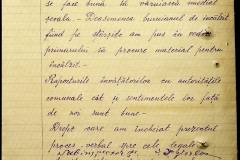 se face bună la vărnicerea medical
școala. - Deasemenea bumanul de încălzit
fiind pe sfârșite am pus în vedere
primarului să procure material pentru
încălzit. -
Raporturile învățătorilor cu autoritățile
comunale cât și sentimentele lor față
de noi sunt bune. -
Drept care am încheiat prezentul
proces-verbal spre cele legale.